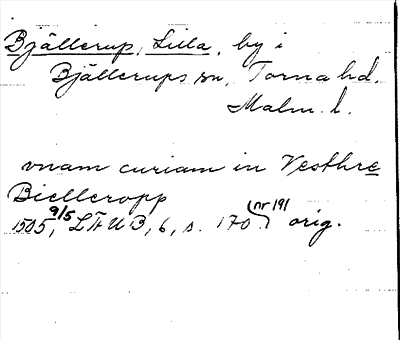 Bjällerup, Lilla, by i
Bjällerups sn, Torna hd.
Malm. l.
vnam curiam in Vesthre
Bielleropp
1505 9/5, LÄUB, 6, s. 170 (nr 191) orig.